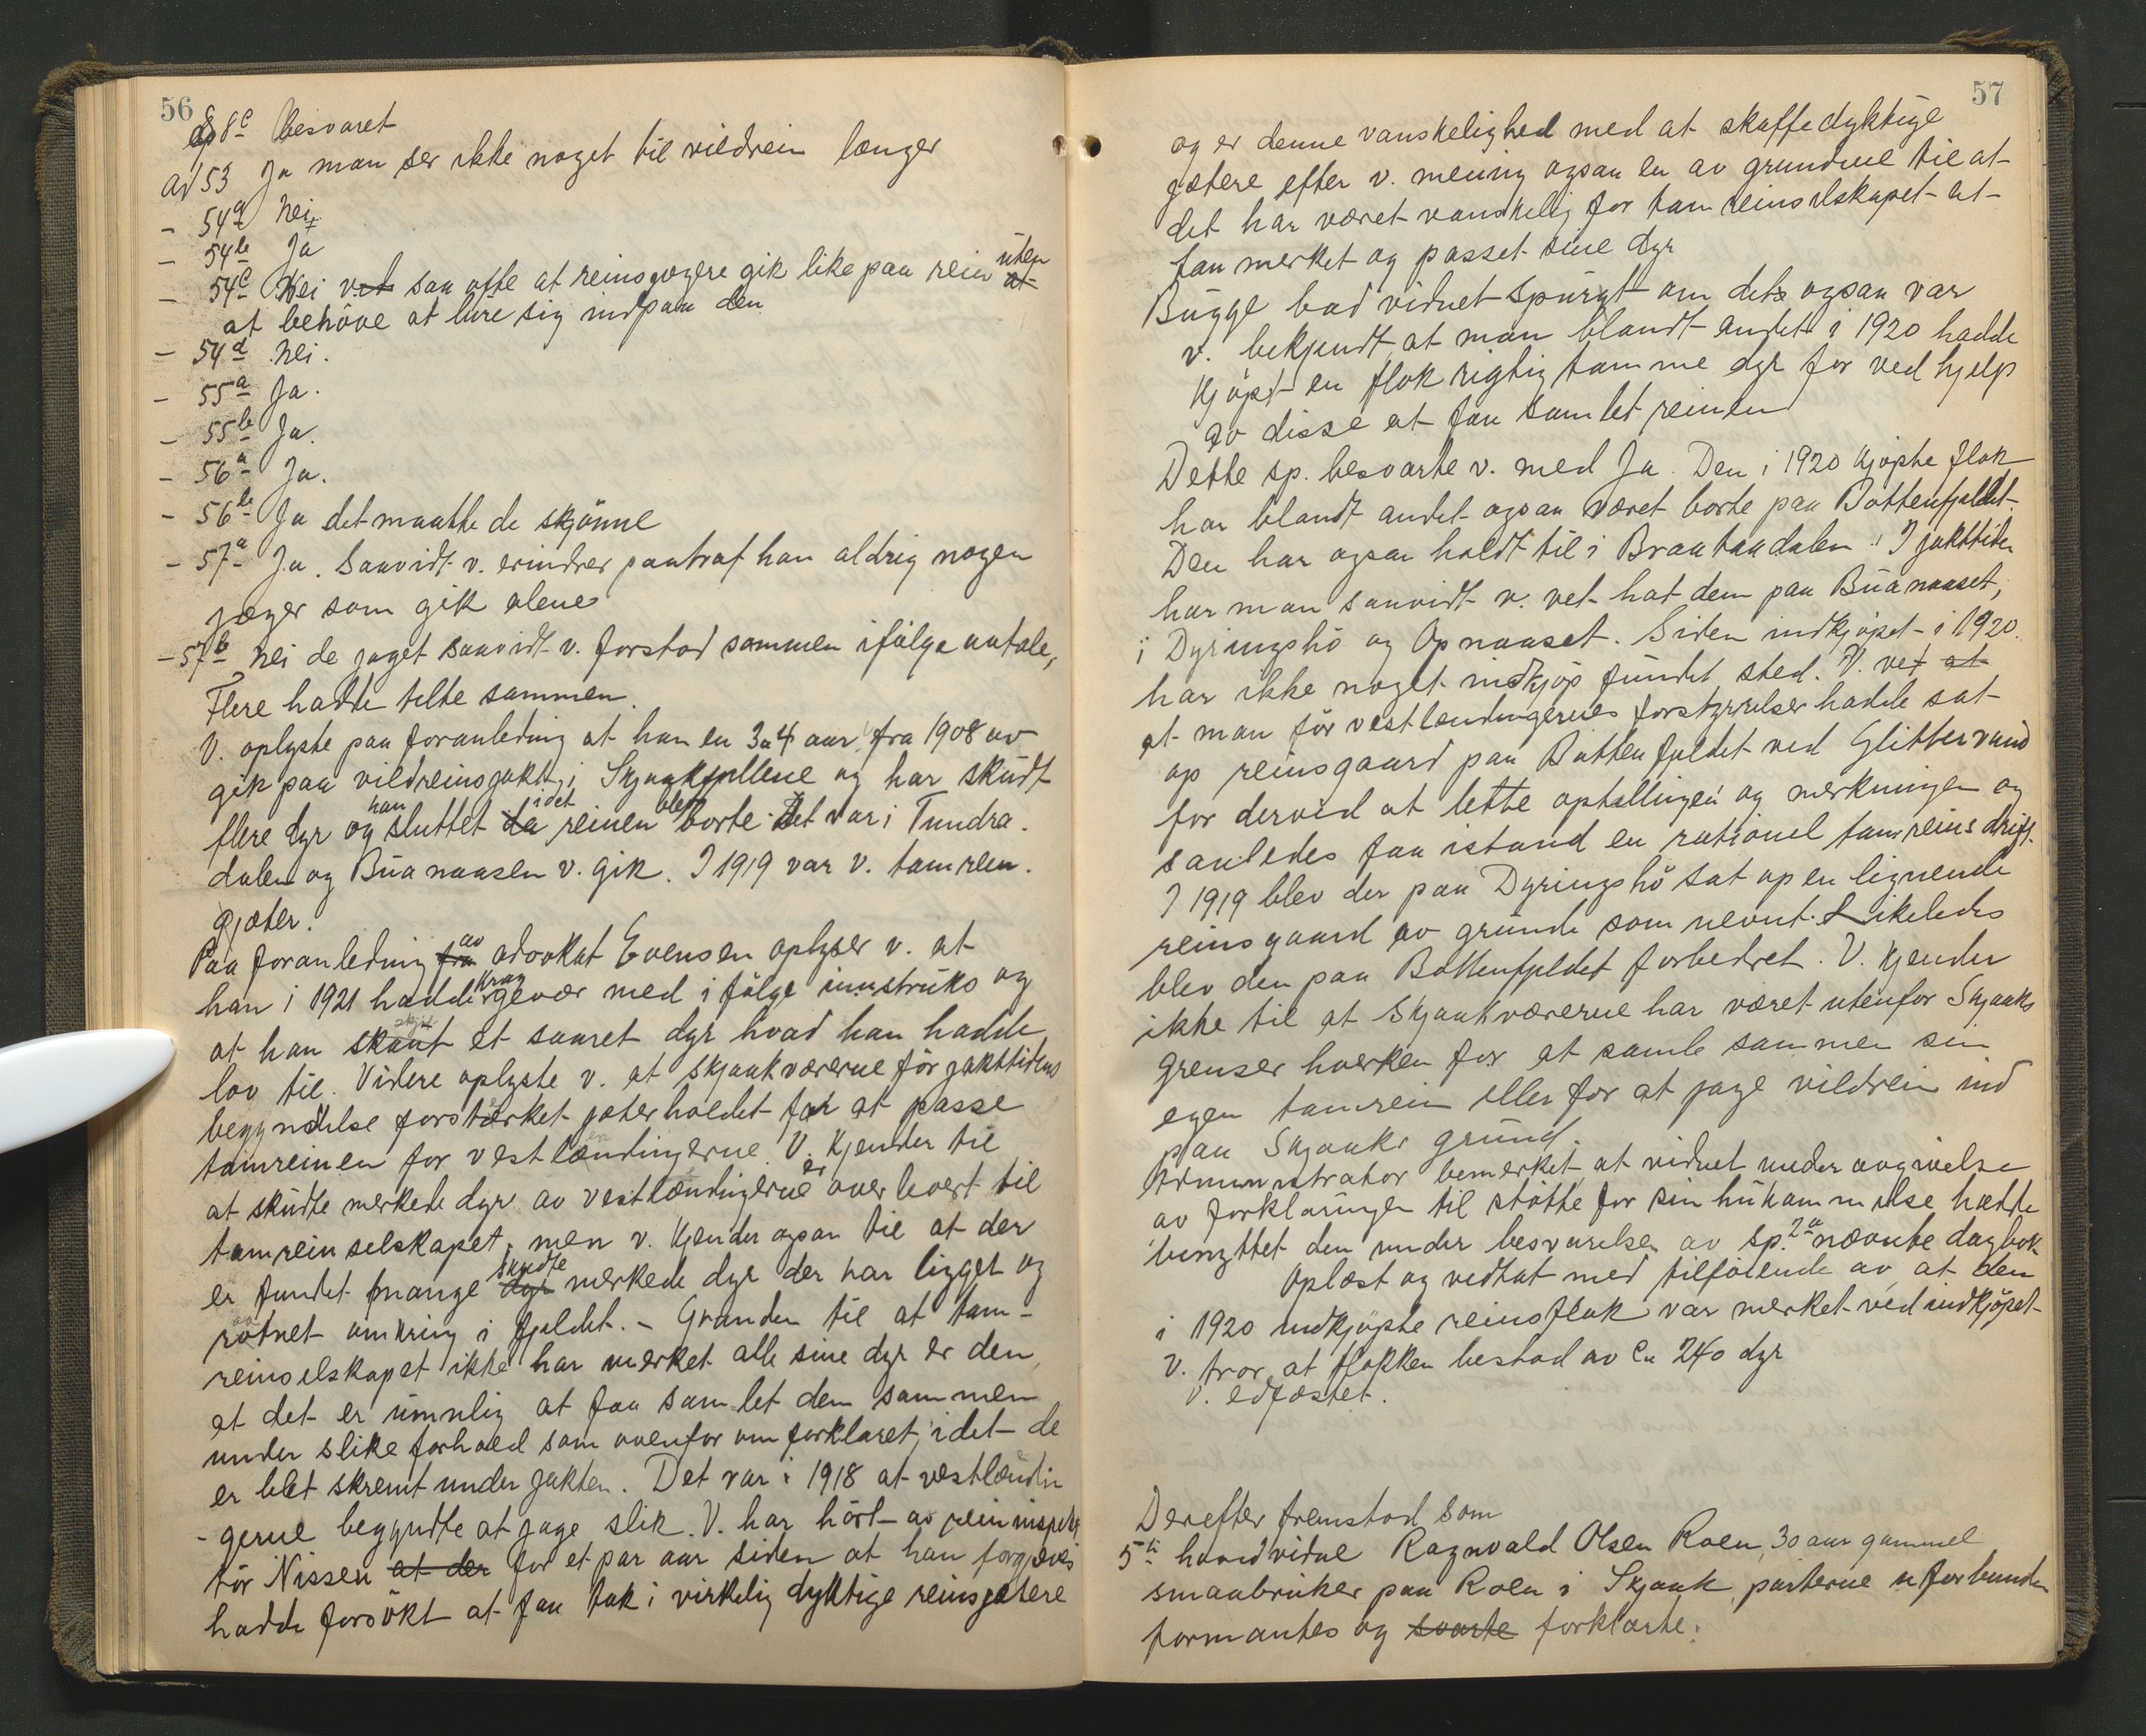 56
8c Besvaret
ad 53 Ja man ser ikke noget til vildrein længer
- 54a Nei
- 54b Ja
- 54c Nei vet saa ofte at reinsjægere gik like paa rein uten at
at behöve at lure sig indpaa den
- 54d Nei.
- 55a Ja.
- 55b Ja.
- 56a Ja.
- 56b Ja det maatte de skjönne
- 57a Ja. Saavidt v. erindrer paatraf han aldrig nogen
jæger som gik alene
- 57b Nei de jaget saavidt v. forstod sammen ifölge avtale,
Flere hadde telte sammen.
V. oplyste paa foranledning at han en 3 a 4 aar fra 1908 av
gik paa vildreinsjakt i Skjaakfjellene og har skudt
flere dyr og han sluttet da idet reinen blev borte. Det var i Tundra-
dalen og Buanaasen v. gik. I 1919 var v. tamrein-
gjæter.
Paa foranledning fra av advokat Evensen oplyser v. at
han i 1921 hadde krag gevær med i fölge instruks og
at han skaut skjöt et saaret dyr hvad han hadde
lov til. Videre oplyste v. at skjaakværerne för jakttidens
begyndelse forstærket jæterholdet for at passe
tamreinen for vestlændingerne. V. kjender til
at skudte merkede dyr av vestlændingerne er overlevert til
tamreinselskapet, men v. kjender ogsaa til at der
er fundet mange dyr skudte merkede dyr der har ligget og
rotnet omkring i fjeldet. - Grunden til at tam-
reinselskapet ikke har merket alle sine dyr er den
at det er umulig at faa samlet dem sammen
under slike forhold som ovenfor om forklaret, idet de
er blet skremt under jakten. Det var i 1918 at vestlændin
- gerne begyndte at jage slik. V. har hört av reininspek
tör Nissen at der for et par aar siden at han forgjæves
hadde forsökt at faa tak i virkelig dyktige reinsjætere
57
og er denne vanskelighed med at skaffe dyktige
jætere efter v. mening ogsaa en av grundene til at
det har været vanskelig for tamreinselskapet at
faa merket og passet sine dyr
Bugge bad vidnet spurgt om det ogsaa var
v. bekjendt at man blandt andet i 1920 hadde
kjöpt en flok rigtig tamme dyr for ved hjelp
av disse at faa samlet reinen
Dette sp. besvarte v. med Ja. Den i 1920 kjöpte flok
har blandt andet ogsaa været borte paa Bottenfjeldet.
Den har ogsaa holdt til i Braataadalen. I jakttiden
har man saavidt v. vet hat dem paa Buanaaset,
i Dyringshö og Opnaaset. Siden indkjöpet i 1920.
har ikke noget indkjöp fundet sted. V. vet at
at man för vestlændingernes forstyrrelser hadde sat
op reinsgaard paa Bottenfjeldet ved Glittervand
for derved at lette optællingen og merkningen og
saaledes faa istand en rationel tamreinsdrift.
I 1919 blev der paa Dyringshö sat op en lignende
reinsgaard av grunde som nevnt. Likeledes
blev den paa Bottenfjeldet forbedret. V. kjender
ikke til at Skjaakværerne har været utenfor Skjaaks
grenser hverken for at samle sammen sin
egen tamrein eller for at jage vildrein ind
paa Skjaaks grund.
Administrator bemerket at vidnet under avgivelse
av forklaringen til stötte for sin hukommelse hadde
benyttet den under besvarelsen av sp. 2a nævnte dagbok
Oplæst og vedtat med tilföiende av at den
i 1920 indkjöpte reinsflok var merket ved indkjöpet
V. tror at flokken bestod av ca 240 dyr
V. edfæstet.
Derefter fremstod som
5te hovedvidne Ragnvald Olsen Roen, 30 aar gammel
smaabruker paa Roen i Skjaak, parterne uforbunden
formantes og svarte forklarte: